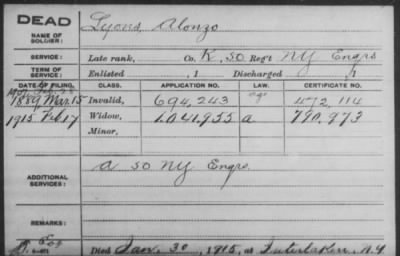 DEAD
NAME OF SOLDIER: Lyons, Alonzo
SERVICE: Late rank, Co. K, 50 Reg't NY Engrs
TERM OF SERVICE: Enlisted , 1 Discharged , 1
DATE OF FILING. CLASS. APPLICATION NO. LAW. CERTIFICATE NO.
1889 Mar. 15 Invalid, 694,243 472,114
1915 Feb 17 Widow, 1,041,955 a 790,973
Minor,
ADDITIONAL SERVICES: a 50 NY Engrs
REMARKS:
Died Jan. 30, 1915, at Interlaken, N.Y.